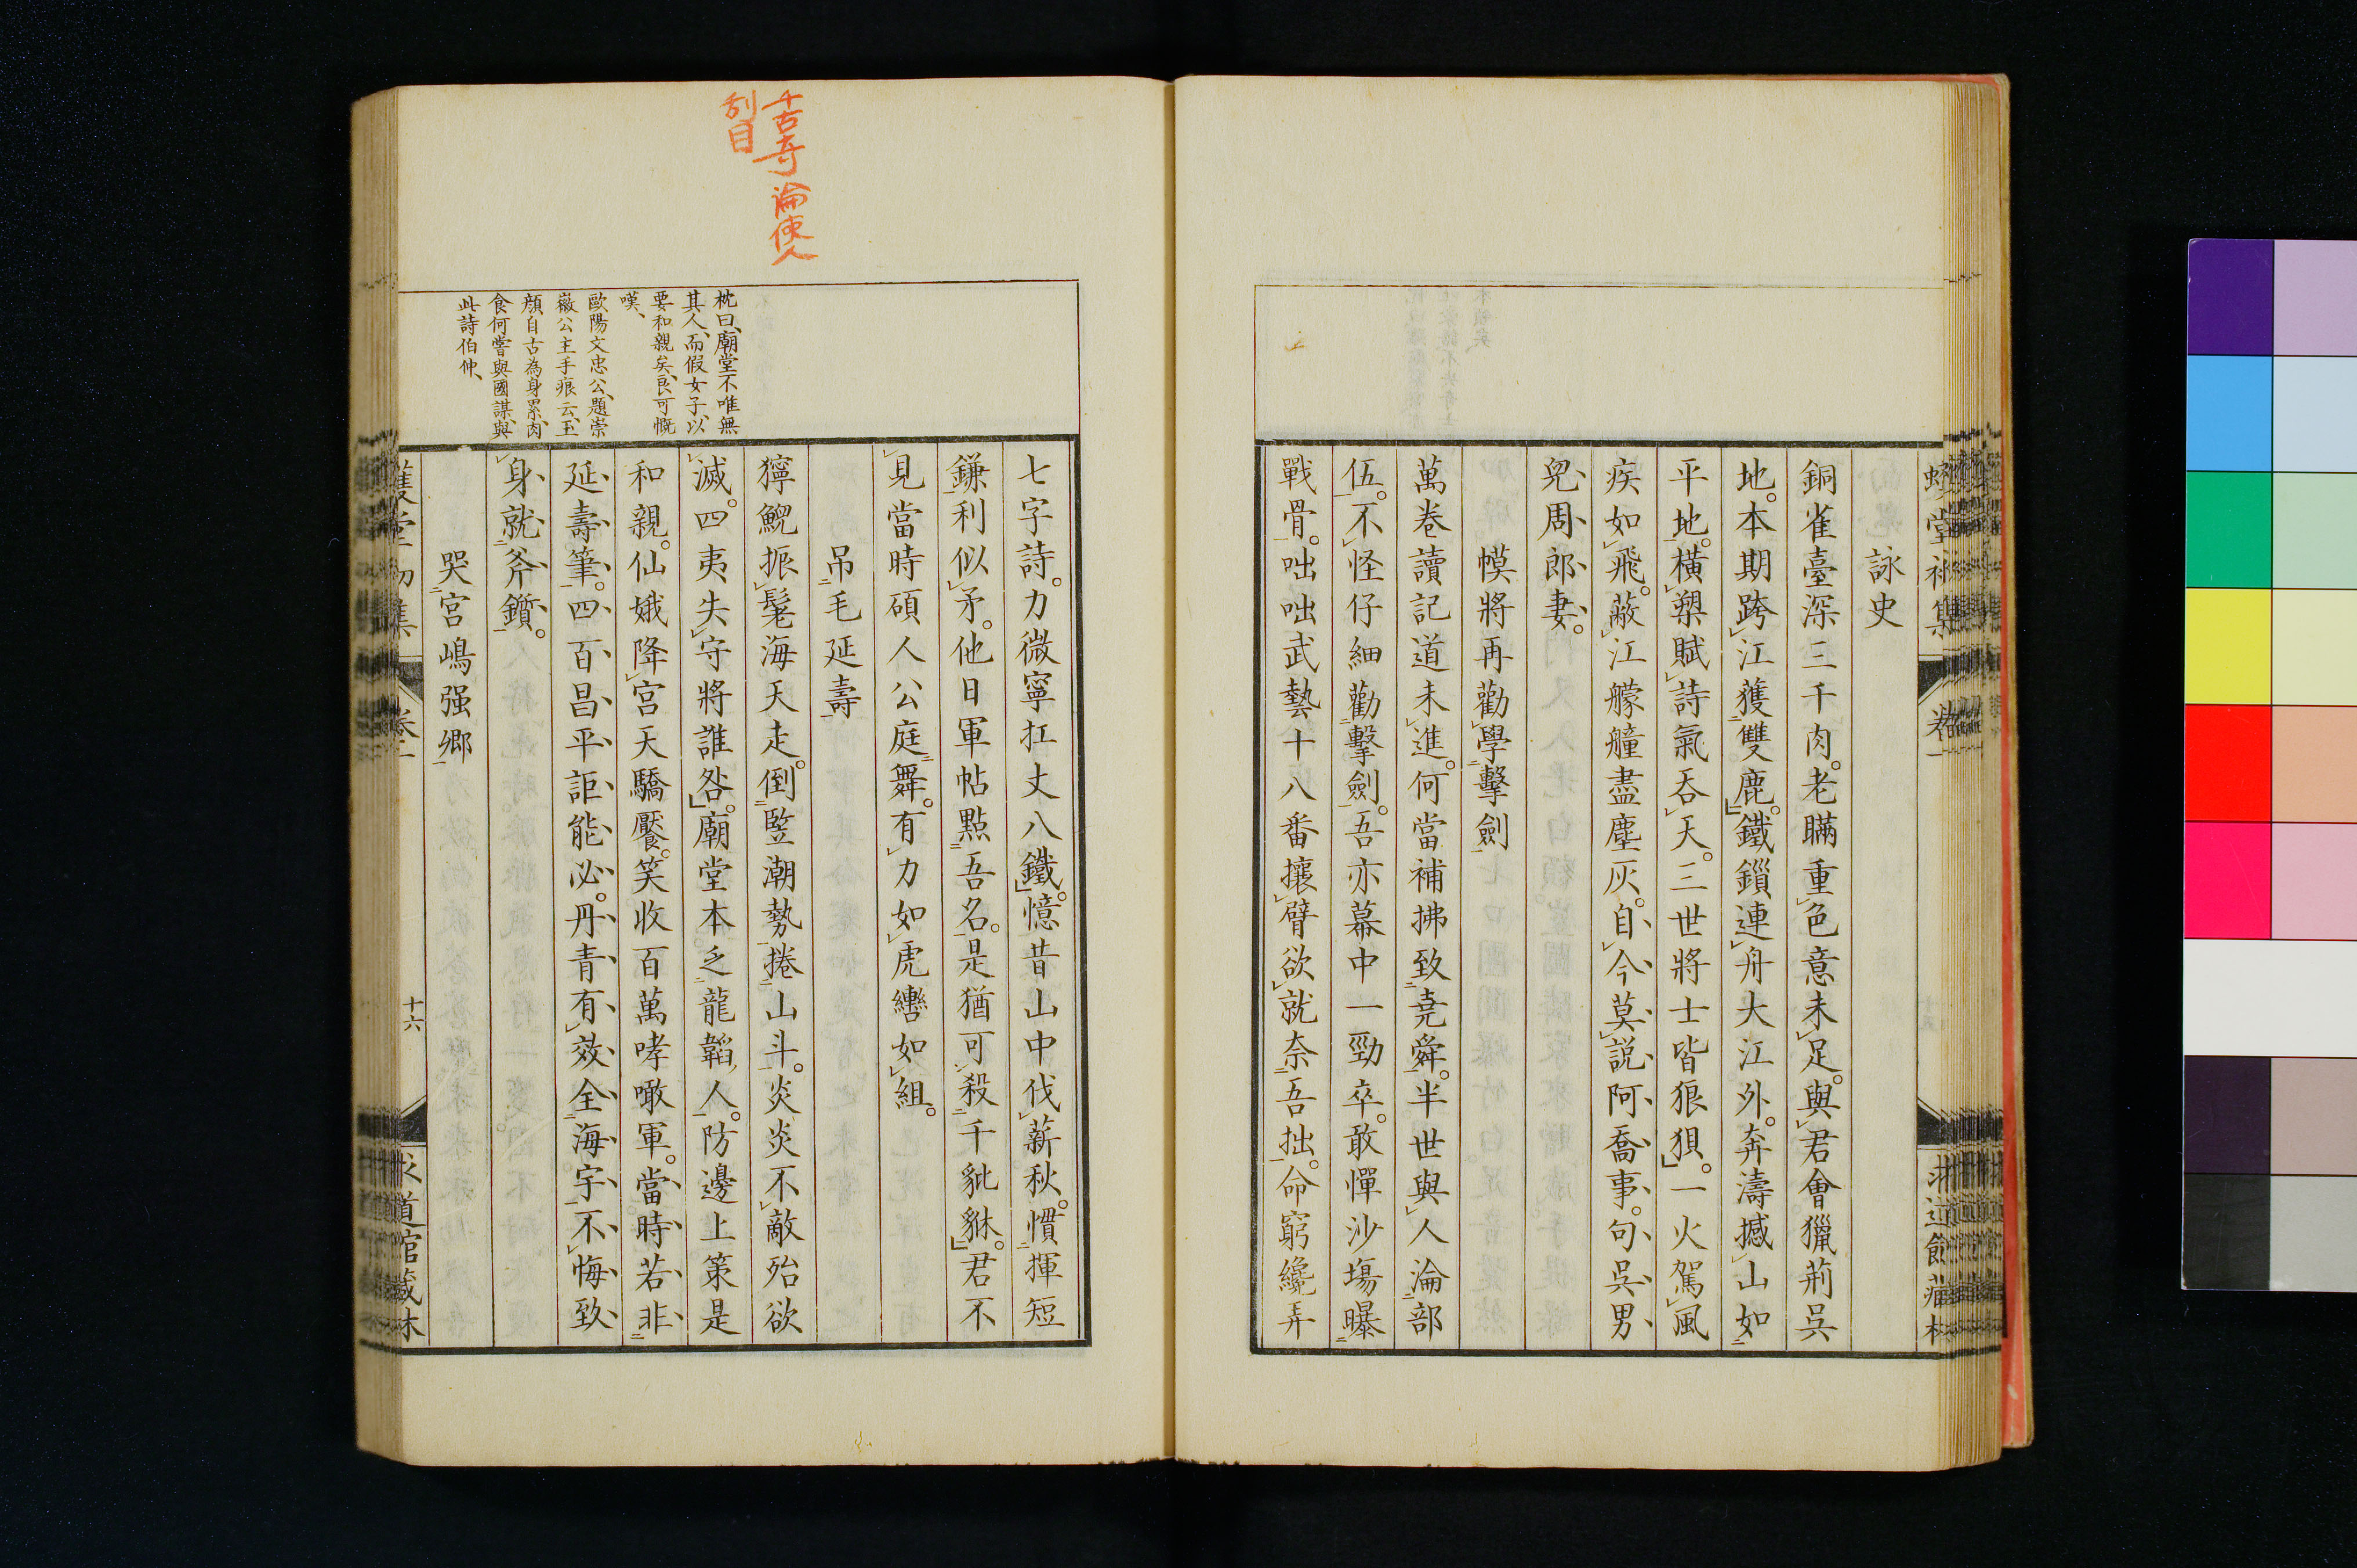 詠史
銅雀臺深三千肉。老瞞重色意未足。與君會獵荊吳
地。本期跨江獲雙鹿。鐵鎖連舟大江外。奔濤撼山如
平地。橫槊賦詩氣吞天。三世將士皆狼狽。一火駕風
疾如飛。蔽江艨艟盡塵灰。自今莫説阿喬事。句吳男
兒周郎妻。
幙將再勸學擊劍
萬卷讀記道未進。何當補拂致堯舜。半世與人淪部
伍。不怪仔細勸擊劍。吾亦幕中一勁卒。敢憚沙場曝
戰骨。咄咄武藝十八番攘臂欲就奈吾拙。命窮纔弄
七字詩。力微寧扛丈八鐵。憶昔山中伐薪秋。慣揮短
鎌利似矛。他日軍帖點吾名。是猶可殺千貔貅。君不
見當時碩人公庭舞。有力如虎轡如組。
吊毛延壽
獰鯢振鬣海天走。倒豎潮勢捲山斗。炎炎不敵殆欲
滅。四夷失守將誰咎。廟堂本乏龍韜人。防邊上策是
和親。仙娥降宮天驕饜。笑收百萬哮噉軍。當時若非
延壽筆。四百昌平詎能必。丹青有效全海宇。不悔致
身就斧鑕。
哭宮嶋强鄉
卷一
十六
求道館藏梓
枕曰、廟堂不唯無
其人、而假女子、以
要和親矣、良可慨
嘆、
歐陽文忠公、題崇
徽公主手痕云、玉
顏自古為身累、肉
食何嘗與國謀、與
此詩伯仲、
千古奇論使人
刮目